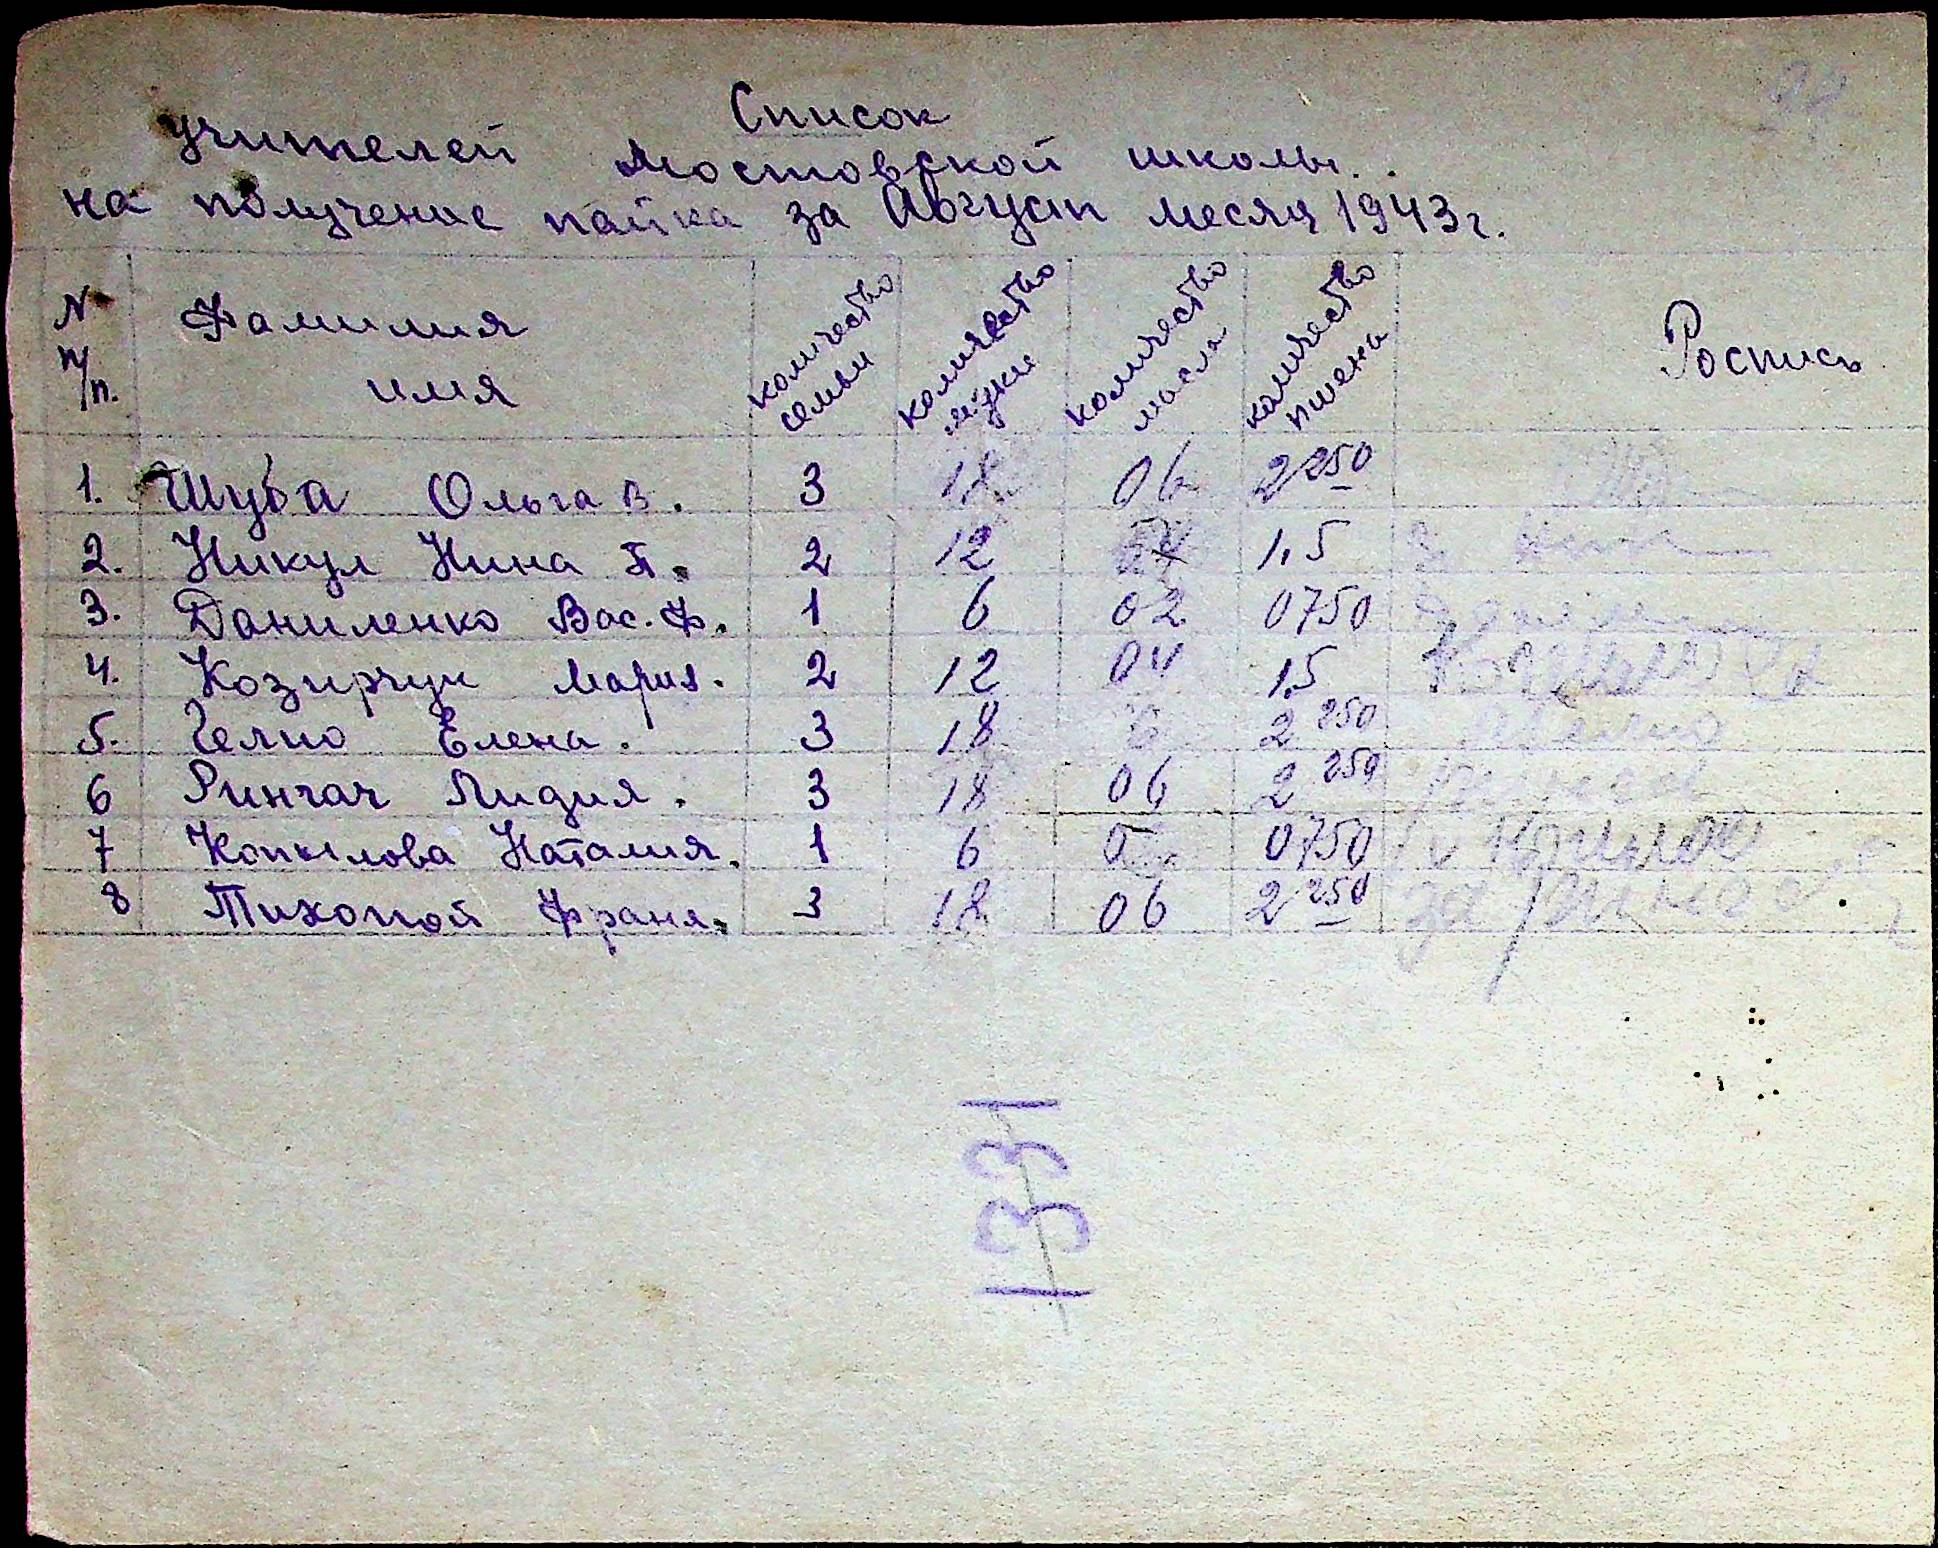 Список
учителей Мостовской школы.
на получение пайка за Август месяц 1943 г.
N п/п. Фамилия имя количество семьи количество муки количество масла количество пшена Роспись
1. Шуба Ольга В. 3 18 06 2 250
2. Никул Нина П. 2 12 04 1.5
3. Даниленко Вас. Ф. 1 6 02 0750
4. Козирчук Мария. 2 12 04 1.5
5. Гелио Елена. 3 18 6 2 250
6 Рингач Лидия. 3 18 06 2 250
7 Копылова Наталия. 1 6 0750
8 Тихопой Франя. 3 18 06 2 250 за
133